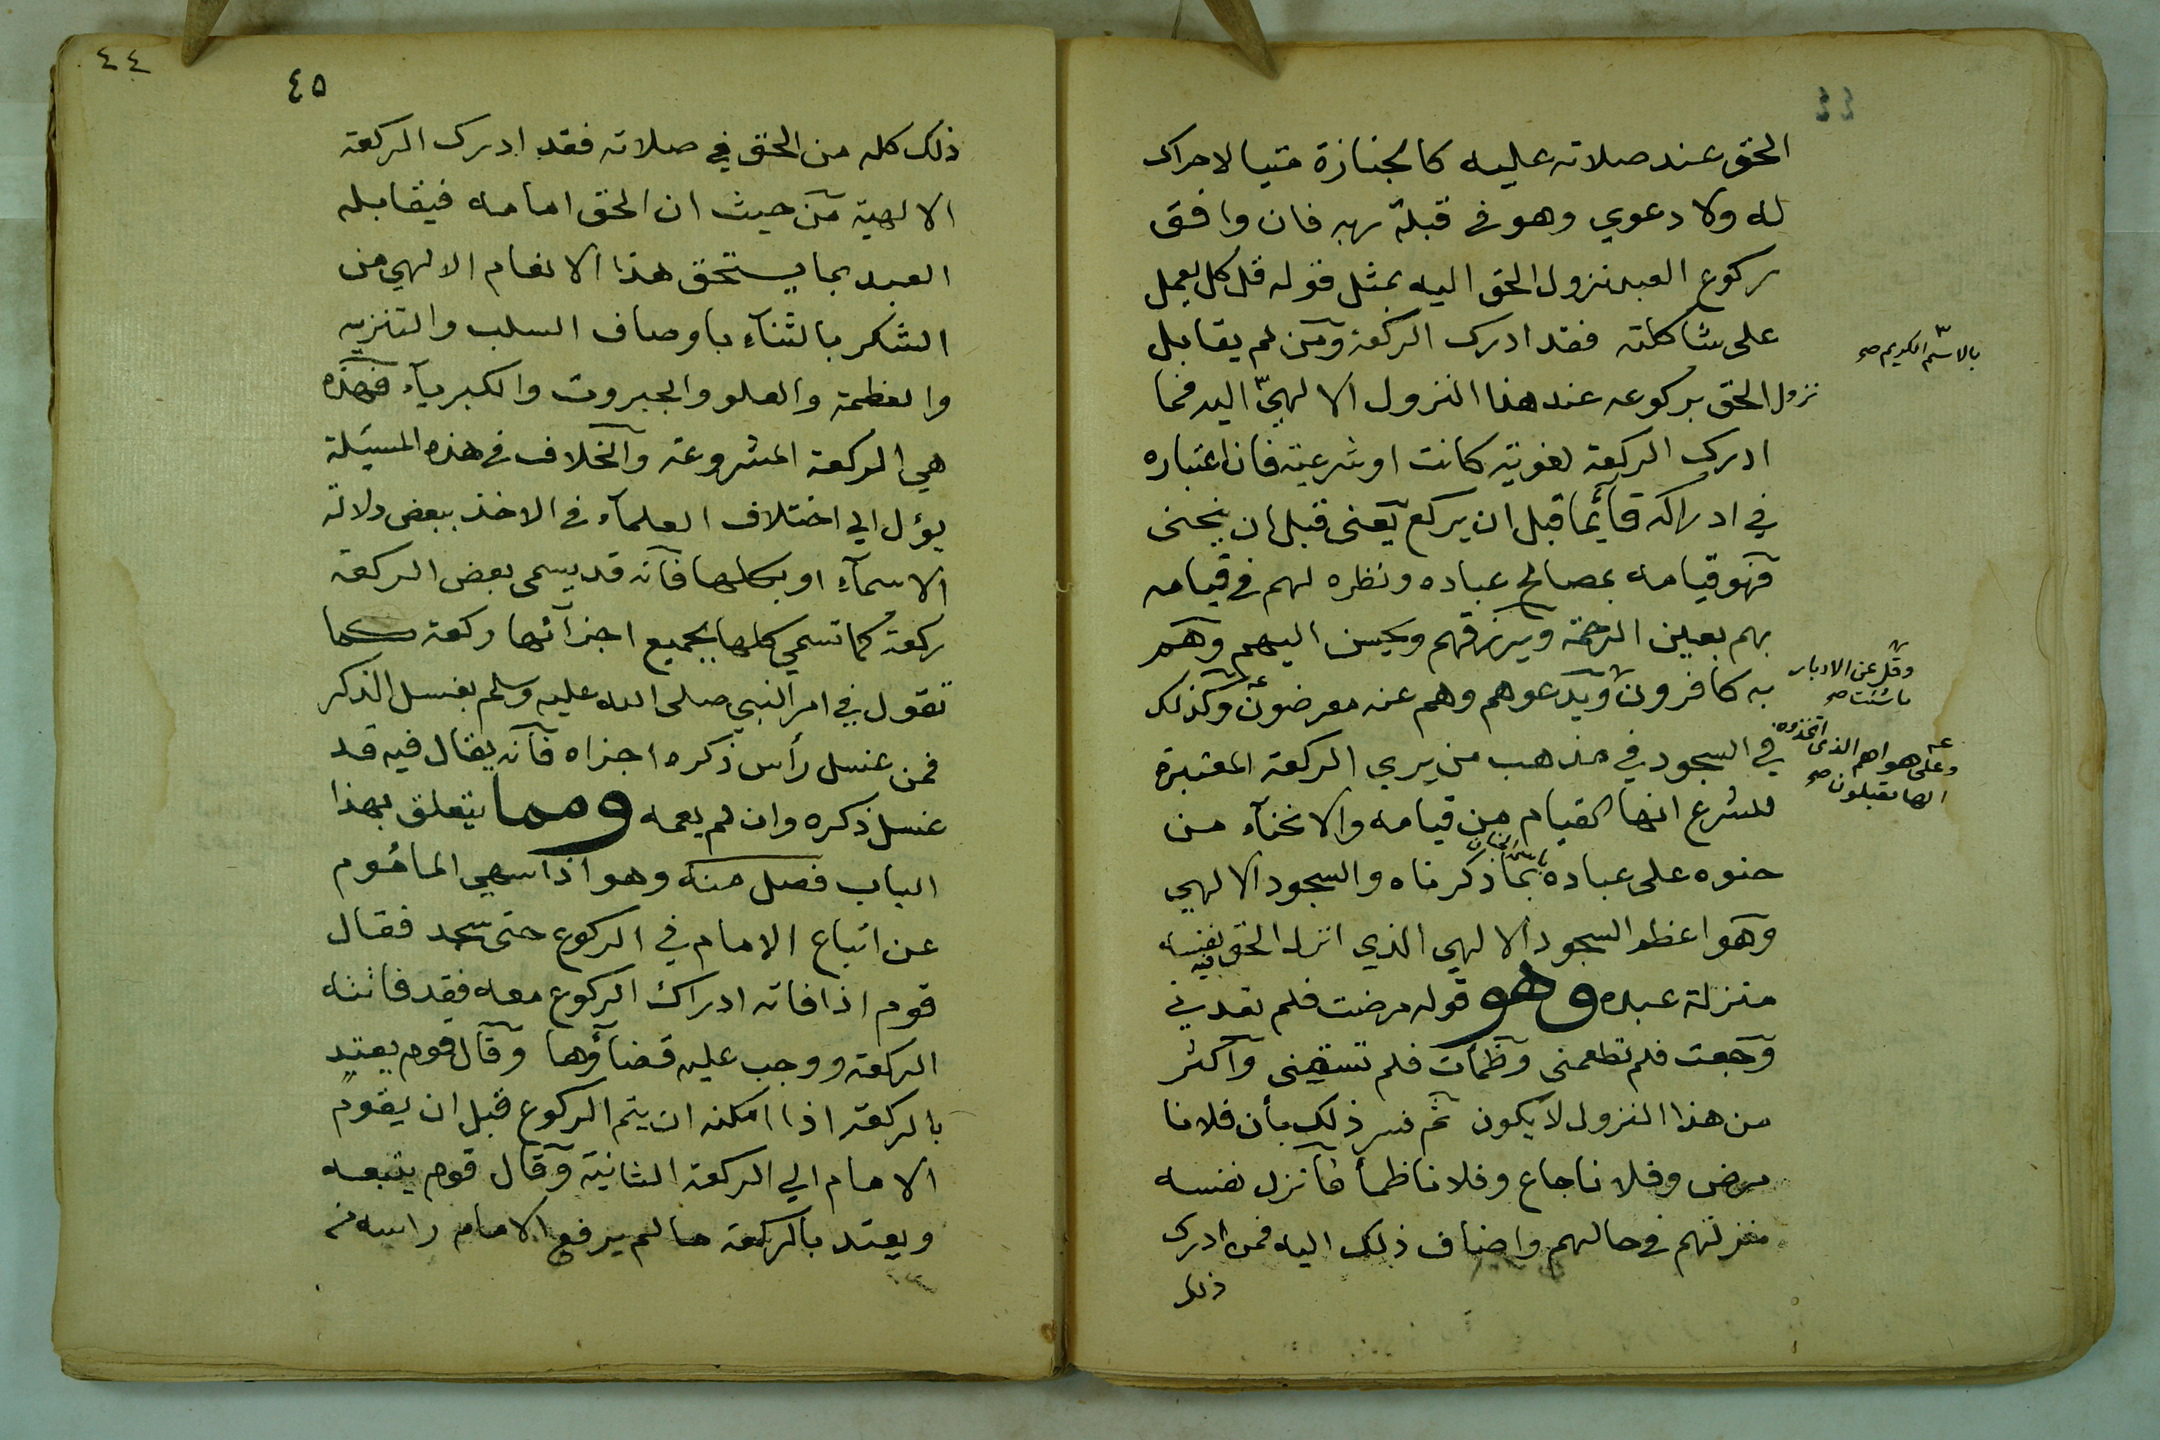 ٤٤
الحق عند صلاته عليه كالجنازة ميتا لا حراك
له ولا دعوي وهو في قبلة ربه فان وافق
ركوع العبد نزول الحق اليه بمثل قوله قل كل يعمل
على شاكلته فقد ادرك الركعة ومن لم يقابل
بالاسم الكريم صح
نزول الحق بركوعه عند هذا النزول الالهي اليه فما
ادرك الركعة لغوية كانت او شرعية فان اعتباره
في ادراكه قائما قبل ان يركع يعنى قبل ان ينحنى
فهو قيامه بمصالح عباده ونظره لهم في قيامه
بهم بعين الرحمة ويرزقهم ويحسن اليهم وهم
به كافرون ويدعوهم وهم عنه معرضون وكذلك
وقل عن الادبار
ما شئت صح
وعلى هواهم الذى اتخذوه
الها مقبلون صح
في السجود في مذهب من يري الركعة المعتبرة
للشرع انها القيام من قيامه والانحناء من
حنوه على عباده بما ذكرناه والسجود الالهي
وهو اعظم السجود الالهي الذي انزل الحق فيه نفسه
منزلة عبده وهو قوله مرضت فلم تعدني
وجعت فلم تطعمنى وظمات فلم تسقينى واكثر
من هذا النزول لا يكون ثم فسر ذلك بأن فلانا
مرض وفلانا جاع وفلانا ظمأ فانزل نفسه
منزلتهم في حالهم واضاف ذلك اليه فمن ادرك
ذلك
٤٤
٤٥
ذلك كله من الحق في صلاته فقد ادرك الركعة
الالهية من حيث ان الحق امامه فيقابله
العبد بما يستحق هذا الانعام الالهي من
الشكر بالثناء باوصاف السلب والتنزيه
والعظمة والعلو والجبروت والكبرياء فهذه
هي الركعة المشروعة والخلاف في هذه المسيلة
يؤل الي اختلاف العلماء في الاخذ ببعض دلالة
الاسماء او بكلها فانه قد يسمى بعض الركعة
ركعة كما تسمي كلها بجميع اجزائها ركعة كما
تقول في امر النبي صلى الله عليه وسلم بغسل الذكر
فمن غسل رأس ذكره اجزاه فانه يقال فيه قد
غسل ذكره وان لم يعمه ومما يتعلق بهذا
الباب فصل منه وهو اذا سهي المأموم
عن اتباع الامام في الركوع حتى سجد فقال
قوم اذا فاته ادراك الركوع معه فقد فاتته
الركعة ووجب عليه قضاؤها وقال قوم يعتد
بالركعة اذا امكنه ان يتم الركوع قبل ان يقوم
الامام الي الركعة الثانية وقال قوم يتبعه
ويعتد بالركعة ما لم يرفع الامام راسه